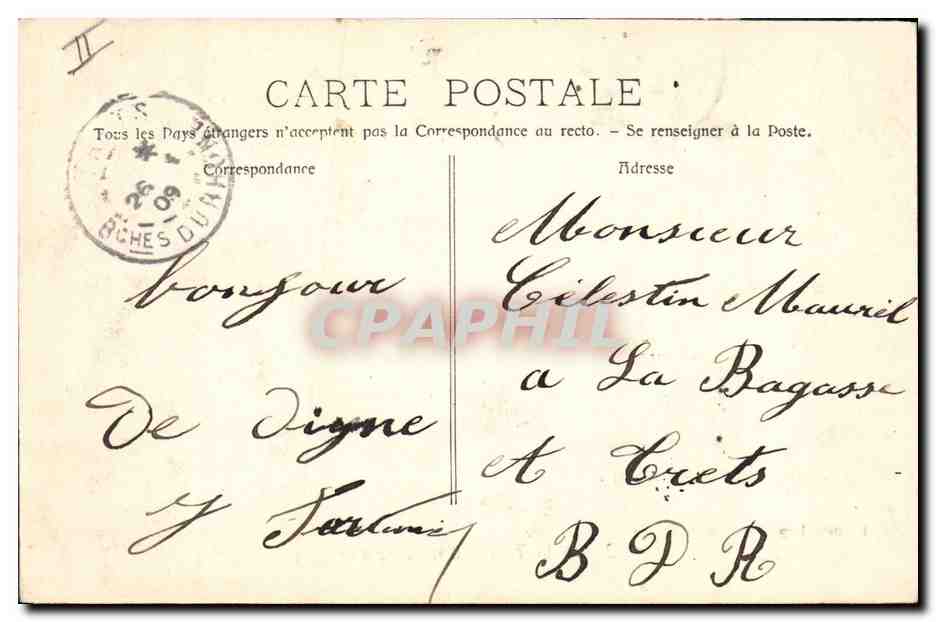 II
CARTE POSTALE
Tous les Pays étrangers n'acceptent pas la Correspondance au recto. - Se renseigner à la Poste.
Correspondance
Adresse
26
09
BCHES DU RHONE
bonjour
De Digne
Monsieur
Célestin Maurel
a La Bagasse
A Trets
B D R
CPAPHIL